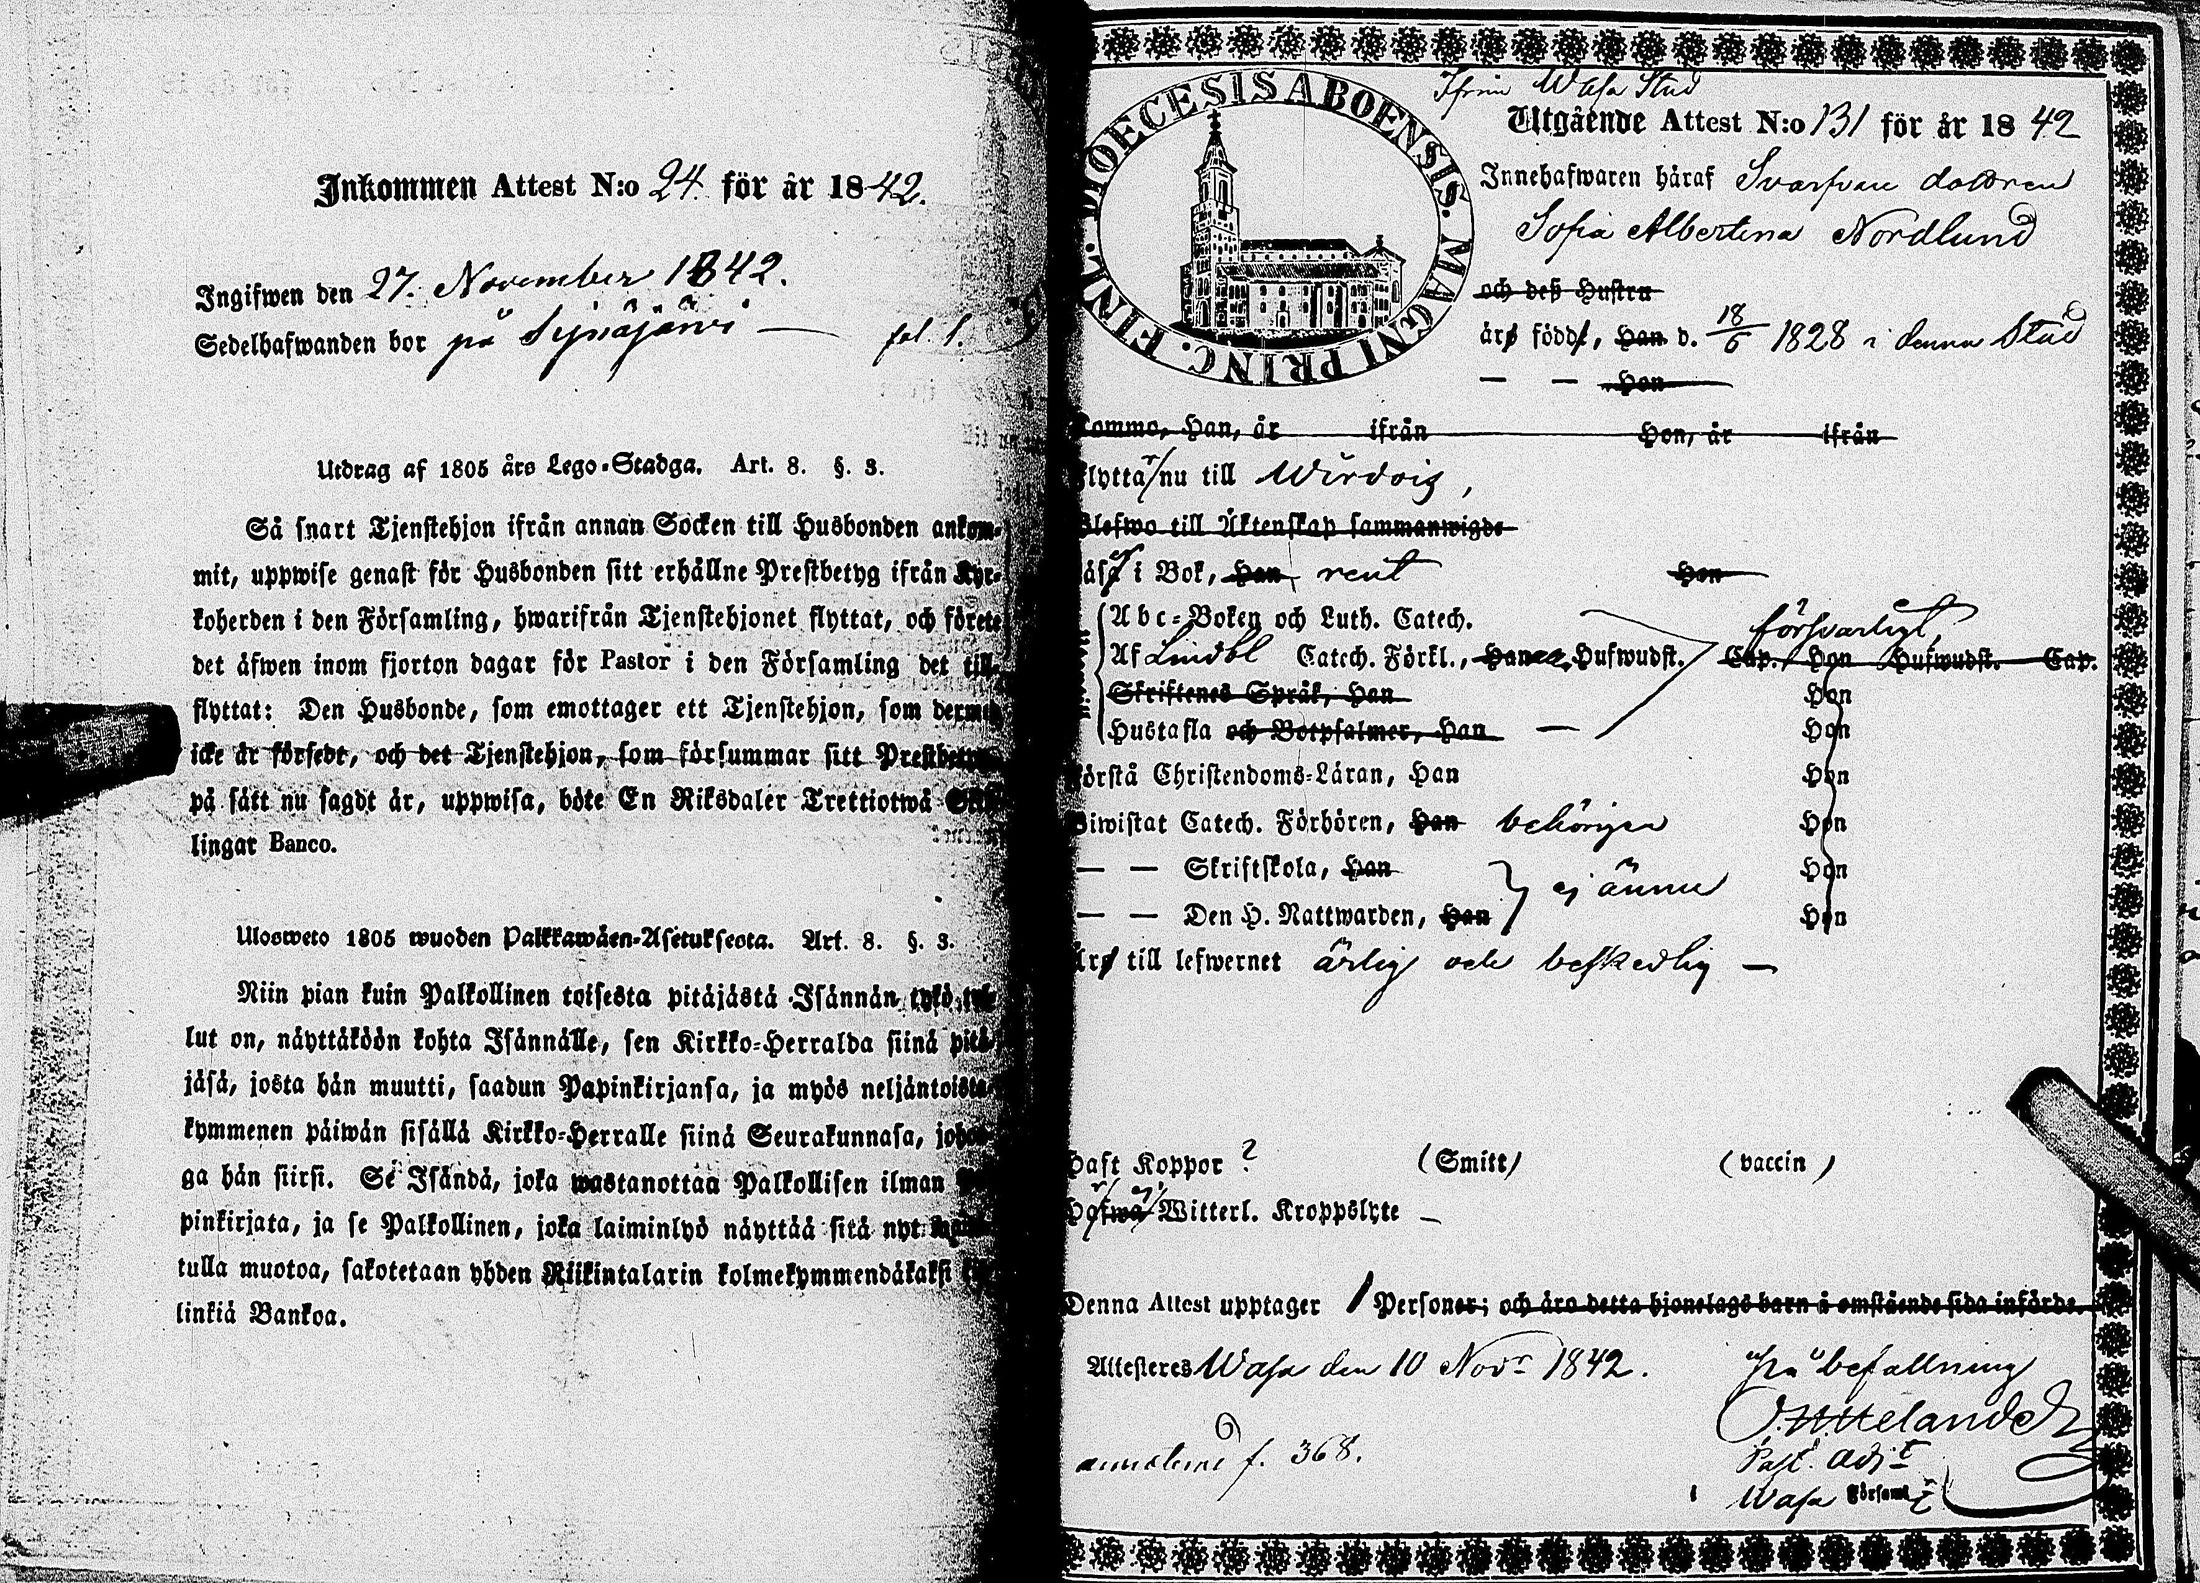 Inkommen Attest N:o 24. för år 1842.
Ingifwen den 27. November 1842.
Sedelhafwanden bor på fol. 1.
Utdrag af 1805 års Lego-Stadga. Art. 8. §. 3.
Så snart Tjenstehjon ifrån annan Socken till Husbonden ankom-
mit, uppwise genast för Husbonden sitt erhållne Prestbetyg ifrån Kyr-
koherden i den Församling, hwarifrån Tjenstehjonet flyttat, och förete
det äfwen inom fjorton dagar för Pastor i den Församling det till-
flyttat: Den Husbonde, som emottager ett Tjenstehjon, som dermed
icke är försedt, och det Tjenstehjon, som försummar sitt Prestbetyg
på sätt nu sagdt är, uppwisa, böte En Riksdaler Trettiotwå Skil-
lingar Banco.
Ulosweto 1805 wuoden Palkkawäen-Asetuksesta. Art. 8. §. 3.
Niin pian kuin Palkollinen toisesta pitäjästä Isännän tykö tul-
lut on, näyttäköön kohta Isännälle, sen Kirkko-Herralda siinä pitä-
jäsä, josta hän muutti, saadun Papinkirjansa, ja myös neljäntoista-
kymmenen päiwän sisällä Kirkko-Herralle siinä Seurakunnasa, johon-
ga hän siirsi. Se Isändä, joka wastanottaa Palkollisen ilman
pinkirjata, ja se Palkollinen, joka laiminlyö näyttää sitä nyt
tulla muotoa, sakotetaan yhden Riikintalarin kolmekymmendäkaksi kil-
linkiä Bankoa.
FINL. DIOECESIS ABOENSIS. MAGNI PRINC.
Ifrån Wasa Stad
Utgående Attest N:o 131 för år 1842
Innehafwaren häraf Svarfvare dottren
Sofia Albertina Nordlund
och deß Hustru
äro född, Han d. 18/6 1828 i denna Stad
— — Hon
Kommo, Han, år ifrån Hon, år ifrån
Flyttar nu till Wirdois,
Blefwo till Äktenskap sammanwigde
Läser i Bok, Han rent Hon
Abc-Boken och Luth. Catech. försvarligt,
Af Lindbl Catech. Förkl., Han Hufwudst. Cap. Hon Hufwudst. Cap.
Skriftenes Språk, Han Hon
Hustafla och Botpsalmer, Han — Hon
Förstå Christendoms-Läran, Han Hon
Biwistat Catech. Förhören, Han behörigen Hon
— — Skriftskola, Han ej ännu Hon
— — Den H. Nattwarden, Han Hon
Äro till lefwernet ärlig och beskedlig —
Haft Koppor ? (Smitt) (vaccin)
Hafwa Witterl. Kroppslyte —
Denna Attest upptager 1 Personer; och äro detta hjonelags barn å omstående sida införde.
Attesteras Wasa den 10 Novr 1842. på befallning
f. 368.
Past. Adjt
Wasa Församl